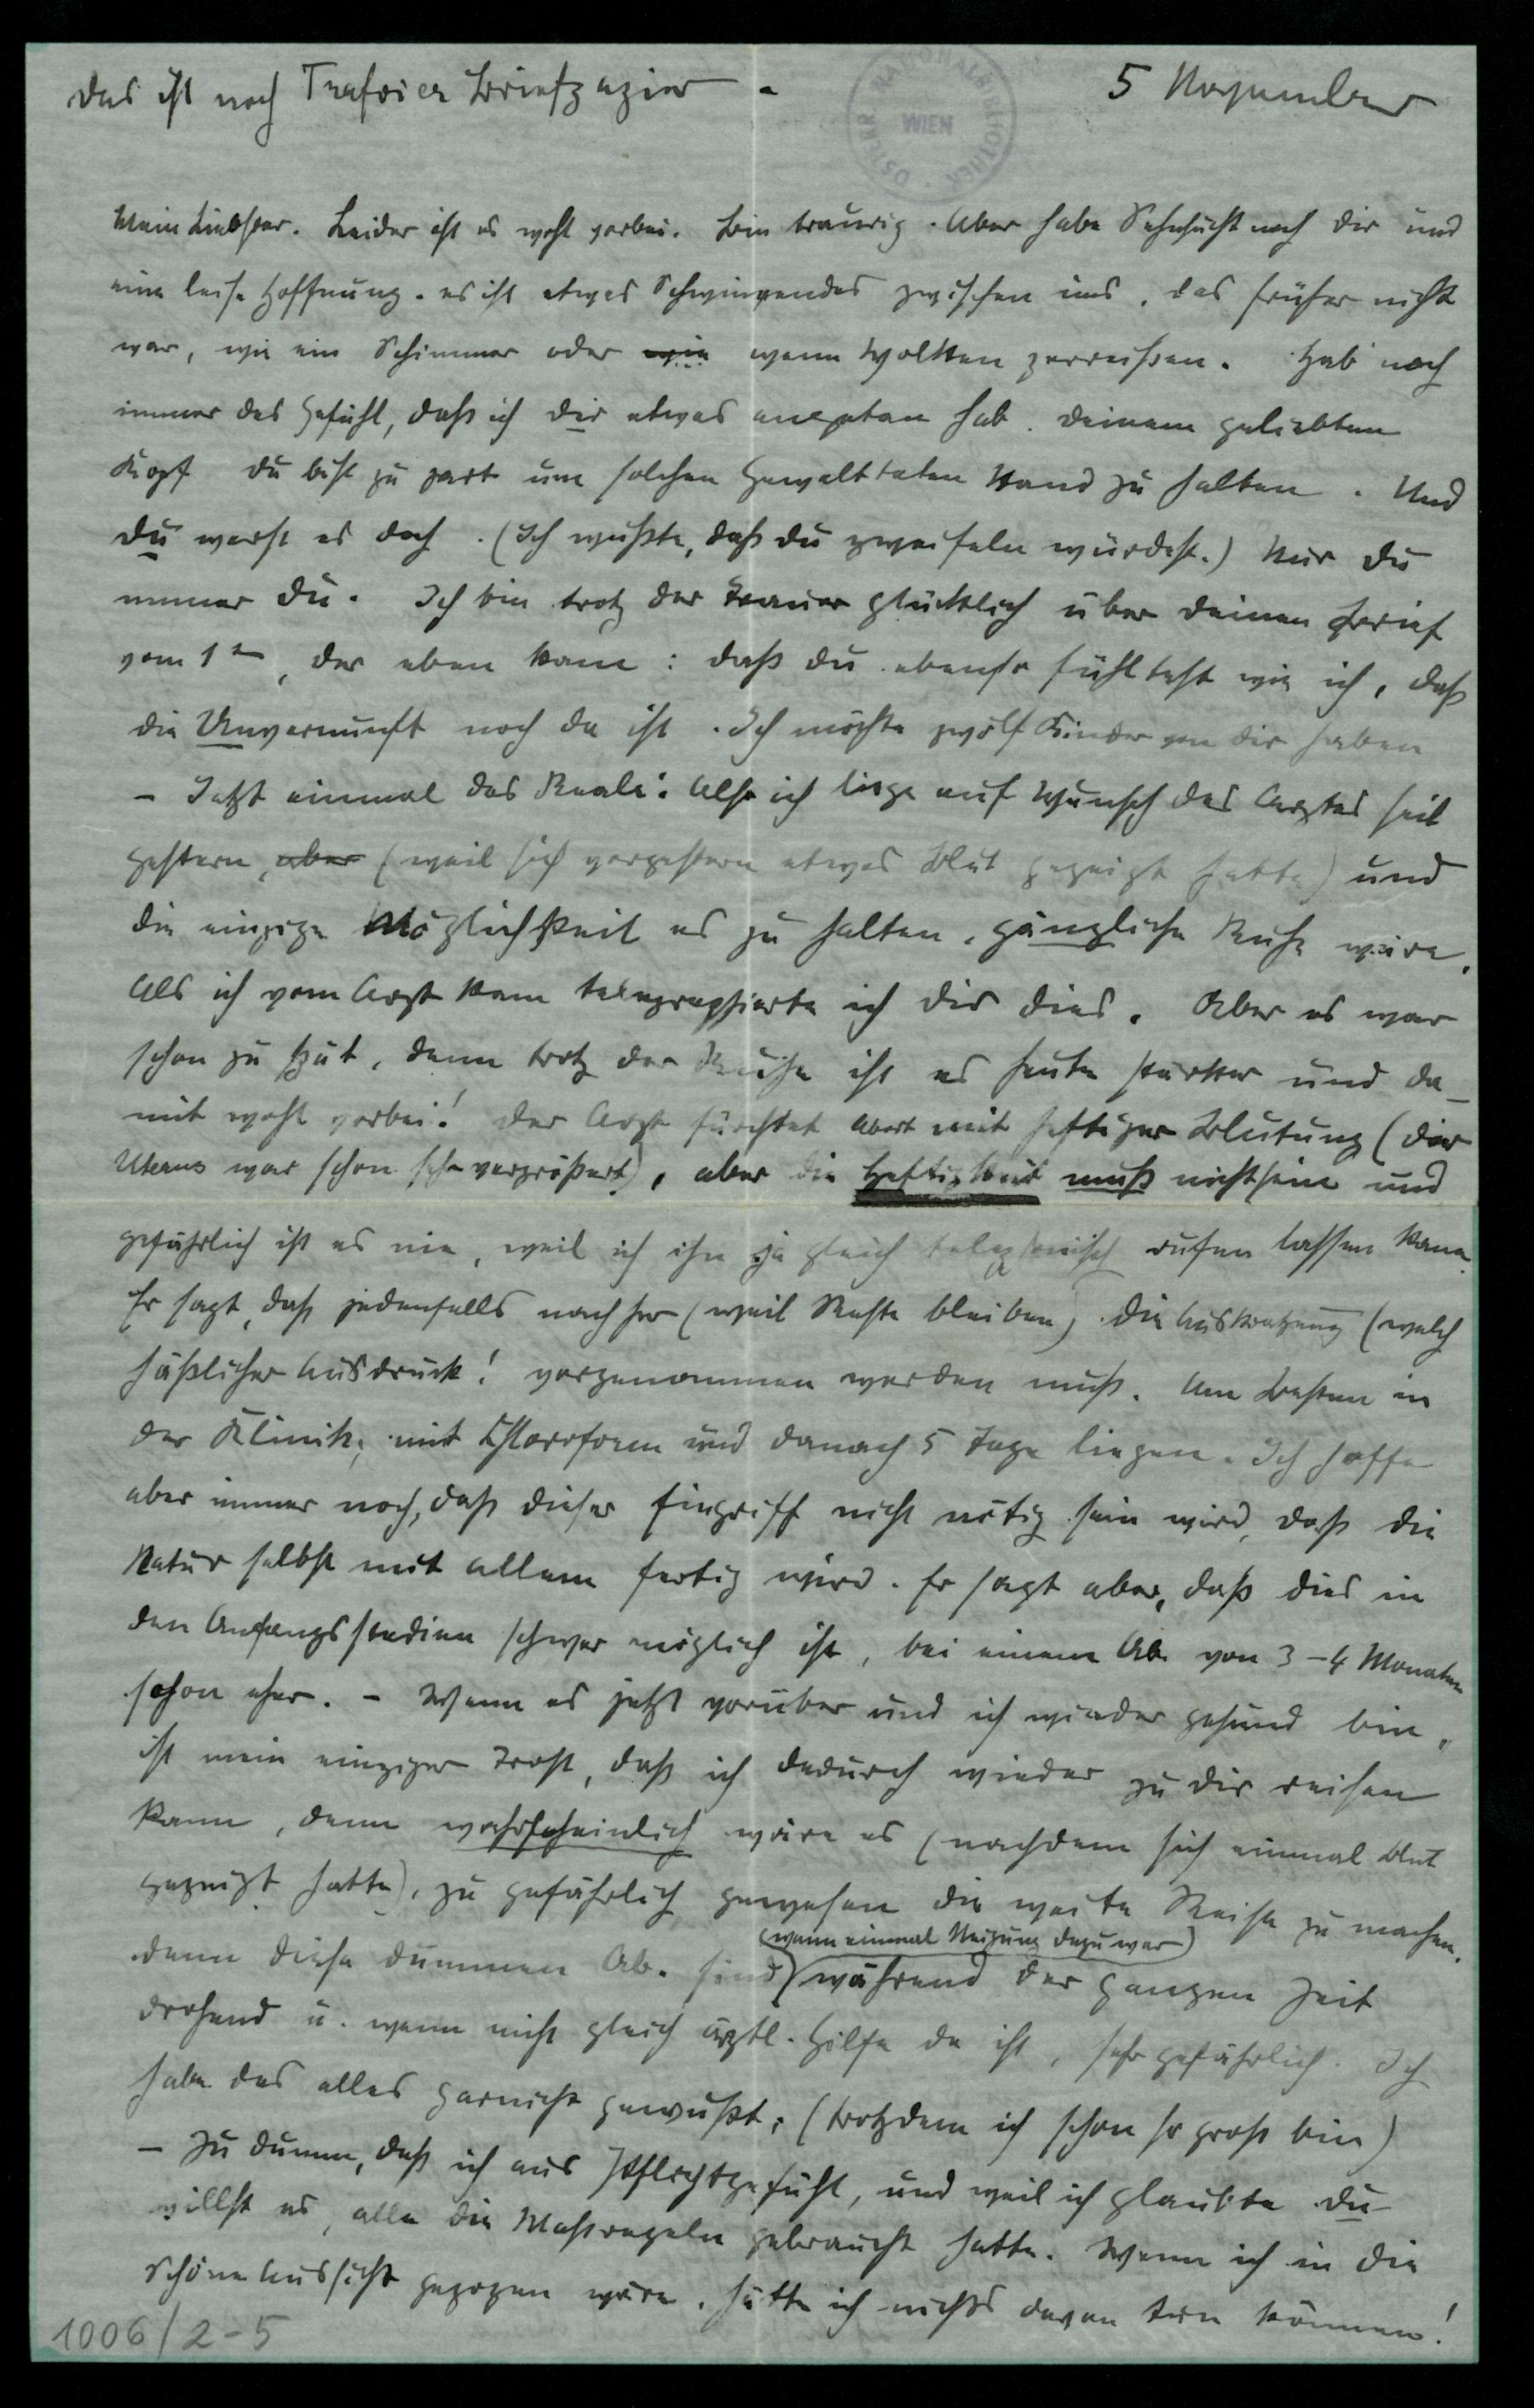 Das ist noch Trafoier Briefpapier -
5 November
ÖSTERR NATIONALBIBLIOTHEK WIEN
Mein Liebster. Leider ist es wohl vorbei. Bin traurig. Aber habe Sehnsucht nach dir und
eine leise Hoffnung. es ist etwas Schwingendes zwischen uns, das früher nicht
war, wie ein Schimmer oder wie wenn Wolken zerreißen. Hab noch
immer das Gefühl, daß ich dir etwas angetan hab. Deinem geliebten
Kopf Du bist zu zart um solchen Gewalttaten Stand zu halten. Und
du warst es doch. (Ich wußte, daß du zweifeln würdest.) Nur du
immer du. Ich bin trotz der Trauer glücklich über deinen Brief
vom 1ten, der eben kam: daß du ebenso fühltest wie ich, daß
die Unvernunft noch da ist. Ich möchte zwölf Kinder von dir haben
- Jetzt einmal das Reale: Also ich liege auf Wunsch des Arztes seit
gestern, aber (weil sich vorgestern etwas Blut gezeigt hatte) und
die einzige Möglichkeit es zu halten, gänzliche Ruhe wäre.
Als ich vom Arzt kam telegraphierte ich dir dies. Aber es war
schon zu spät, denn trotz der Ruhe ist es heute stärker und da-
mit wohl vorbei! Der Arzt fürchtet Abort mit heftiger Blutung (der
Uterus war schon sehr vergrößert), aber die Heftigkeit muß nicht sein und
gefährlich ist es nie, weil ich ihn ja gleich telephonisch rufen lassen kann.
Er sagt, daß jedenfalls nachher (weil Reste bleiben) die Auskratzung (welch
häßlicher Ausdruck! vorgenommen werden muß. Am Besten in
der Klinik, mit Chloroform und danach 5 Tage liegen. Ich hoffe
aber immer noch, daß dieser Eingriff nicht nötig sein wird, daß die
Natur selbst mit allem fertig wird. Er sagt aber, daß dies in
den Anfangsstadien schwer möglich ist, bei einem Ab. von 3-4 Monaten
schon eher. - Wenn es jetzt vorüber und ich wieder gesund bin,
ist mein einziger Trost, daß ich dadurch wieder zu dir reisen
kann, denn wahrscheinlich wäre es (nachdem sich einmal Blut
gezeigt hatte), zu gefährlich gewesen die weite Reise zu machen.
(wenn einmal Neigung dazu war)
denn diese dummen Ab. sind während der ganzen Zeit
drohend u. wenn nicht gleich ärztl. Hilfe da ist, sehr gefährlich. Ich
habe das alles garnicht gewußt, (trotzdem ich schon so groß bin)
- Zu dumm, daß ich aus Pflichtgefühl, und weil ich glaubte du
willst es, alle die Maßregeln gebraucht hatte. Wenn ich in die
Schöne Aussicht gezogen wäre, hätte ich nichts davon tun können!
1006/2-5